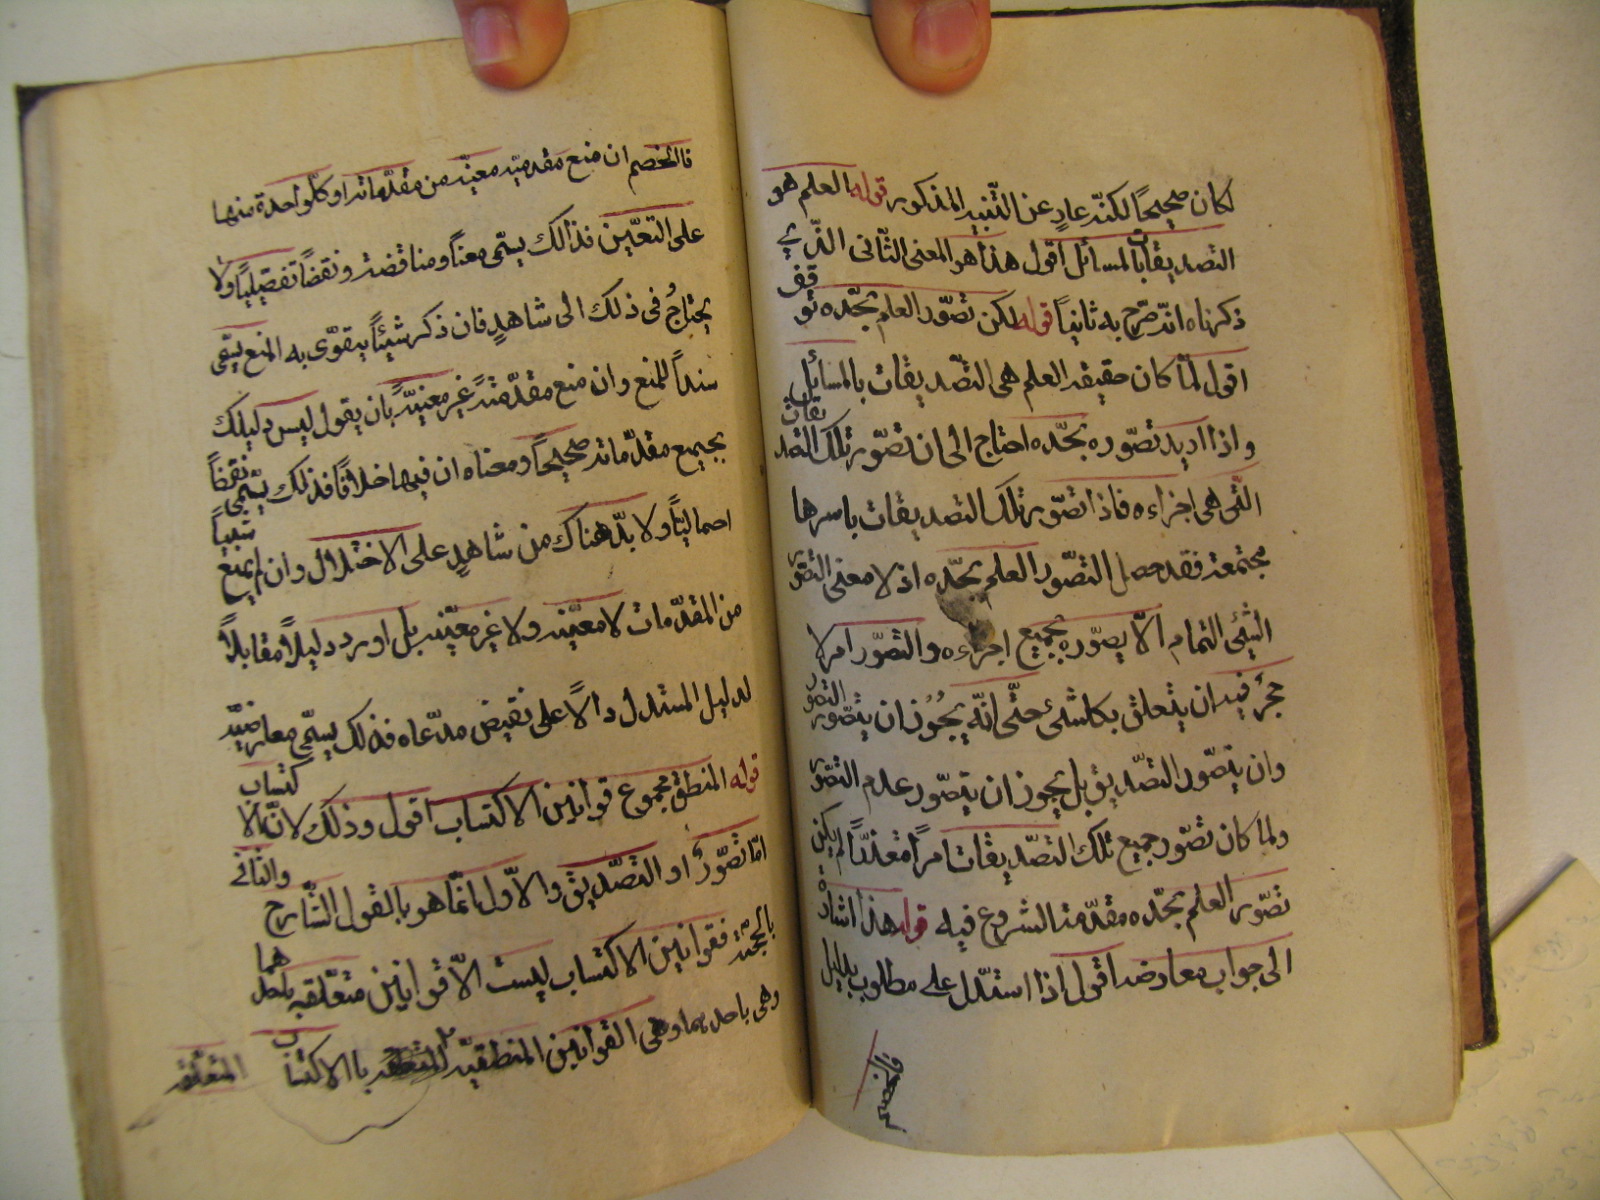 لكان صحيحًا لكنّه عادٍ عن التقييد المذكور قوله العلم هو
التصديقات بالمسائل اقول هذا هو المعنى الثّانى الذّي
ذكرناه انّه صّرح به ثانياً قوله لكن تصّور العلم بحّده توقف
اقول لمّا كان حقيقة العلم هى التّصديقات بالمسائل
واذا اريد تصّوره بحّده احتاج الى ان تصّور تلك التصديقات
الّتى هى اجزاءه فاذا تصّور تلك التصديقات باسرها
مجتمعة فقد حصل التصّور العلم بحّده اذ لا معنى التصّور
الشّئى التمام الاّ بصّوره بجميع اجزاءه والتصّور امر لا
حجرّ فيه ان يتعلق بكلشئ حتّى انّه يجُوُز ان يتصّور التصور
وان يتصّور التصّديق بل يجوز ان يتصّور عدم التصّور
ولما كان تصّور جميع تلك التصّديقات امراً متعذّراً لم يكن
تصّور العلم بحّده مقدّمة الشروع فيه قوله هذا اشارة
الى جواب معارضه اقول اذا استدّل على مطلوب بدليل
فالخصم
فالخصم ان منع مقدميّه معيّنه من مقدّماته او كلّ واحدة منها
على التعيّين فذالك يسّمى معناً ومناقضة ونقضاً تفصيليّاً ولا
يحتاجُ فى ذلك الى شاهدٍ فان ذكر شيئاً يتقوّى به المنع يسّمى
سنداً للمنع وان منع مقدّمتة غير معنيّة بان يقول ليس دليلك
بجميع مقدّماته صحيحاً ومعناه ان فيها خللاً فذلك يسّمى نقضاً
اجماليّاً ولا بدّ هناك من شاهدٍ على الاختلال وان لم يمنع شيئاً
من المقدّمات لا معيّنه ولا غير معيّنه بل اورد دليلاً مقابلاً
لدليل المستدل دالاً على نقيض مدّعاه فذلك يسمّى معارضيّه
قوله المنطق مجموع قوانين الاكتساب اقول وذلك لانّ الاكتساب
امّا تصّور او التصّديق والاّول انّما هو بالقول الشّارح والثانى
بالحجّة فقوانين الاكتساب ليست الاّ قوانين متعّلقه باحدهما
وهى باحدهما وهى القوانين المنطقيّه باالاكتساب المتعلّقه